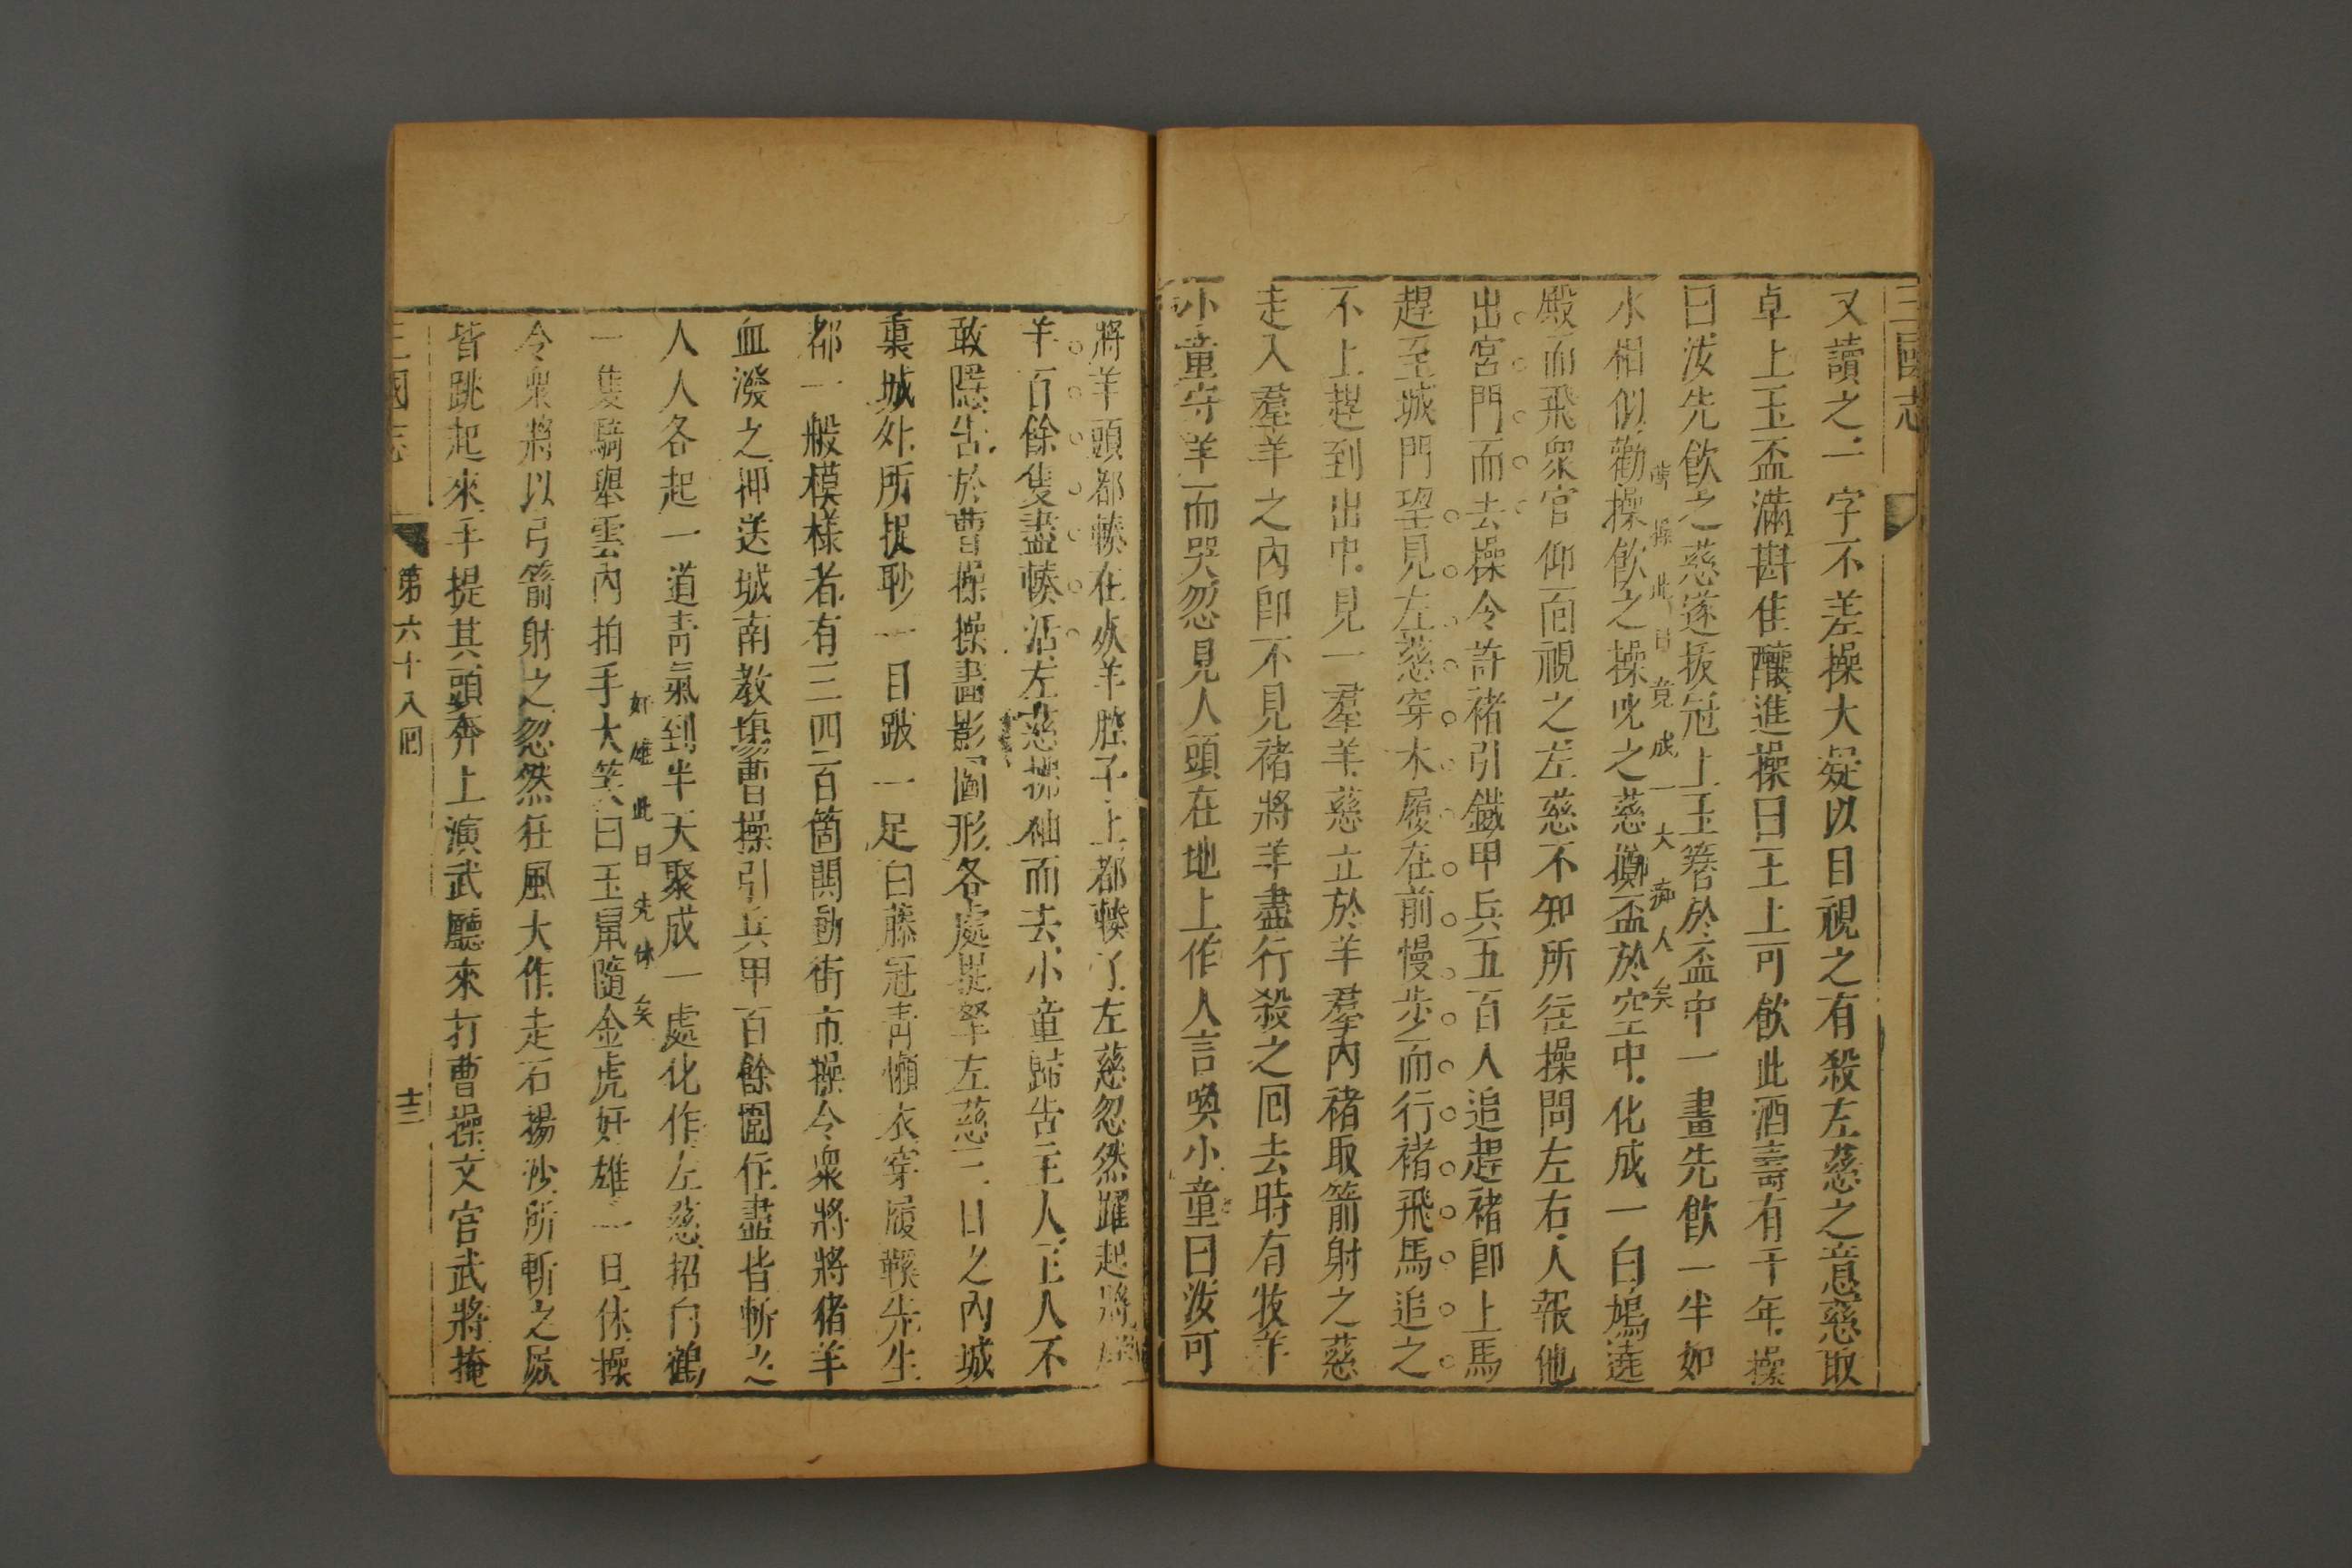 三國志
又讀之一字不差操大疑以目視之有殺左慈之意慈取
卓上玉盃滿斟佳釀進操曰王上可飲此酒壽有千年操
曰汝先飲之慈遂拔冠上玉簪於盃中一畫先飲一半如
操此日竟成一大痴人矣
水相似勸操飲之操叱之慈擲盃於空中化成一白鳩遶
殿而飛眾官仰面視之左慈不知所往操問左右人報他
出宮門而去操令許褚引鐵甲兵五百人追趕褚即上馬
趕至城門望見左慈穿木履在前慢步而行褚飛馬追之
不上趕到山中見一羣羊慈立於羊羣內褚取箭射之慈
走入羣羊之內即不見褚將羊盡行殺之回去時有牧羊
小童守羊而哭忽見人頭在地上作人言喚小童曰汝可
將羊頭都輳在死羊腔子上都輳了左慈忽然躍起將
羊百餘隻盡輳活左慈拂袖而去小童歸告主人主人不
敢隱告於曹操操畫影圖形各處捉拏左慈三日之內城
裏城外所捉眇一目跛一足白藤冠青懶衣穿履鞵先生
都一般模樣者有三四百箇鬨動街市操令衆將將猪羊
血潑之押送城南教塲曹操引兵甲百餘圍住盡皆斬之
人人各起一道青氣到半天聚成一處化作左慈招白鶴
奸雄此日先休矣
一隻騎舉雲內拍手大笑曰玉鼠隨金虎奸雄一旦休操
令衆將以弓箭射之忽然狂風大作走石揚沙所斬之屍
皆跳起來手提其頭奔上演武廳來打曹操文官武將掩
三國志 第六十八回 十三